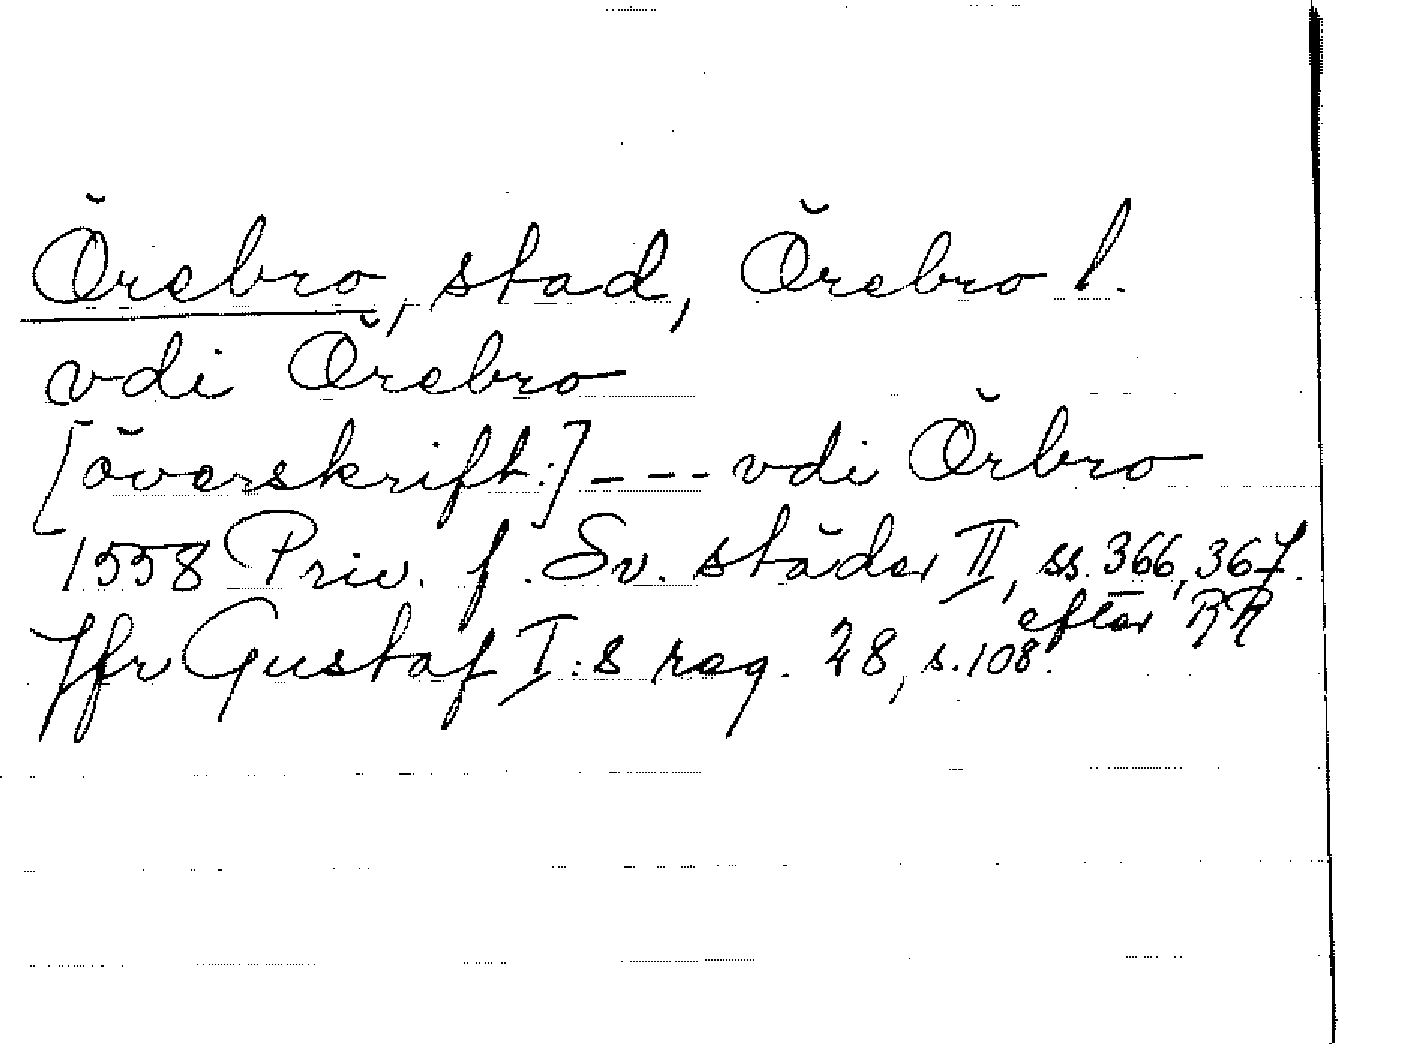 Örebro, stad, Örebro l.
vdi Örebro
[överskrift:] - - - vdi Örbro
1558 Priv. f. Sv. städer II, ss. 366, 367.
efter RR
Jfr Gustaf I:s reg. 28, s. 108.